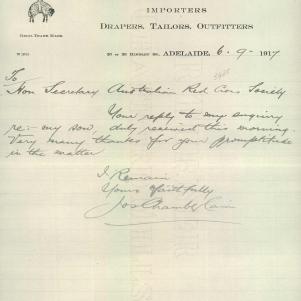 IMPORTERS
DRAPERS, TAILORS, OUTFITTERS
ADELAIDE, 6-9-1917
To
Hon Secretary Australian Red Cross Society
Your reply to my enquiry
re:- my son, duly received this morning.
Very many thanks for your promptitude
in the matter
I Remain
Yours Faithfully
Jos Chamberlain